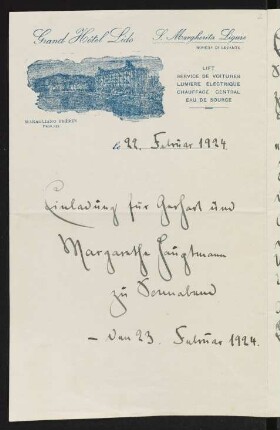 Grand Hôtel Lido
S. Margherita Ligure
RIVIERA DI LEVANTE
LIFT
SERVICE DE VOITURES
LUMIÈRE ÉLECTRIQUE
CHAUFFAGE CENTRAL
EAU DE SOURCE
le 22. Februar 1924
Einladung für Gerhart und
Margarethe Hauptmann
zu Sonnabend
– den 23. Februar 1924.